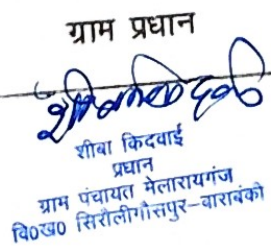 ग्राम प्रधान
शीबा किदवई
शीबा किदवाई
प्रधान
ग्राम पंचायत मेलारायगंज
वि०ख० सिरौलीगौसपुर–बाराबंकी